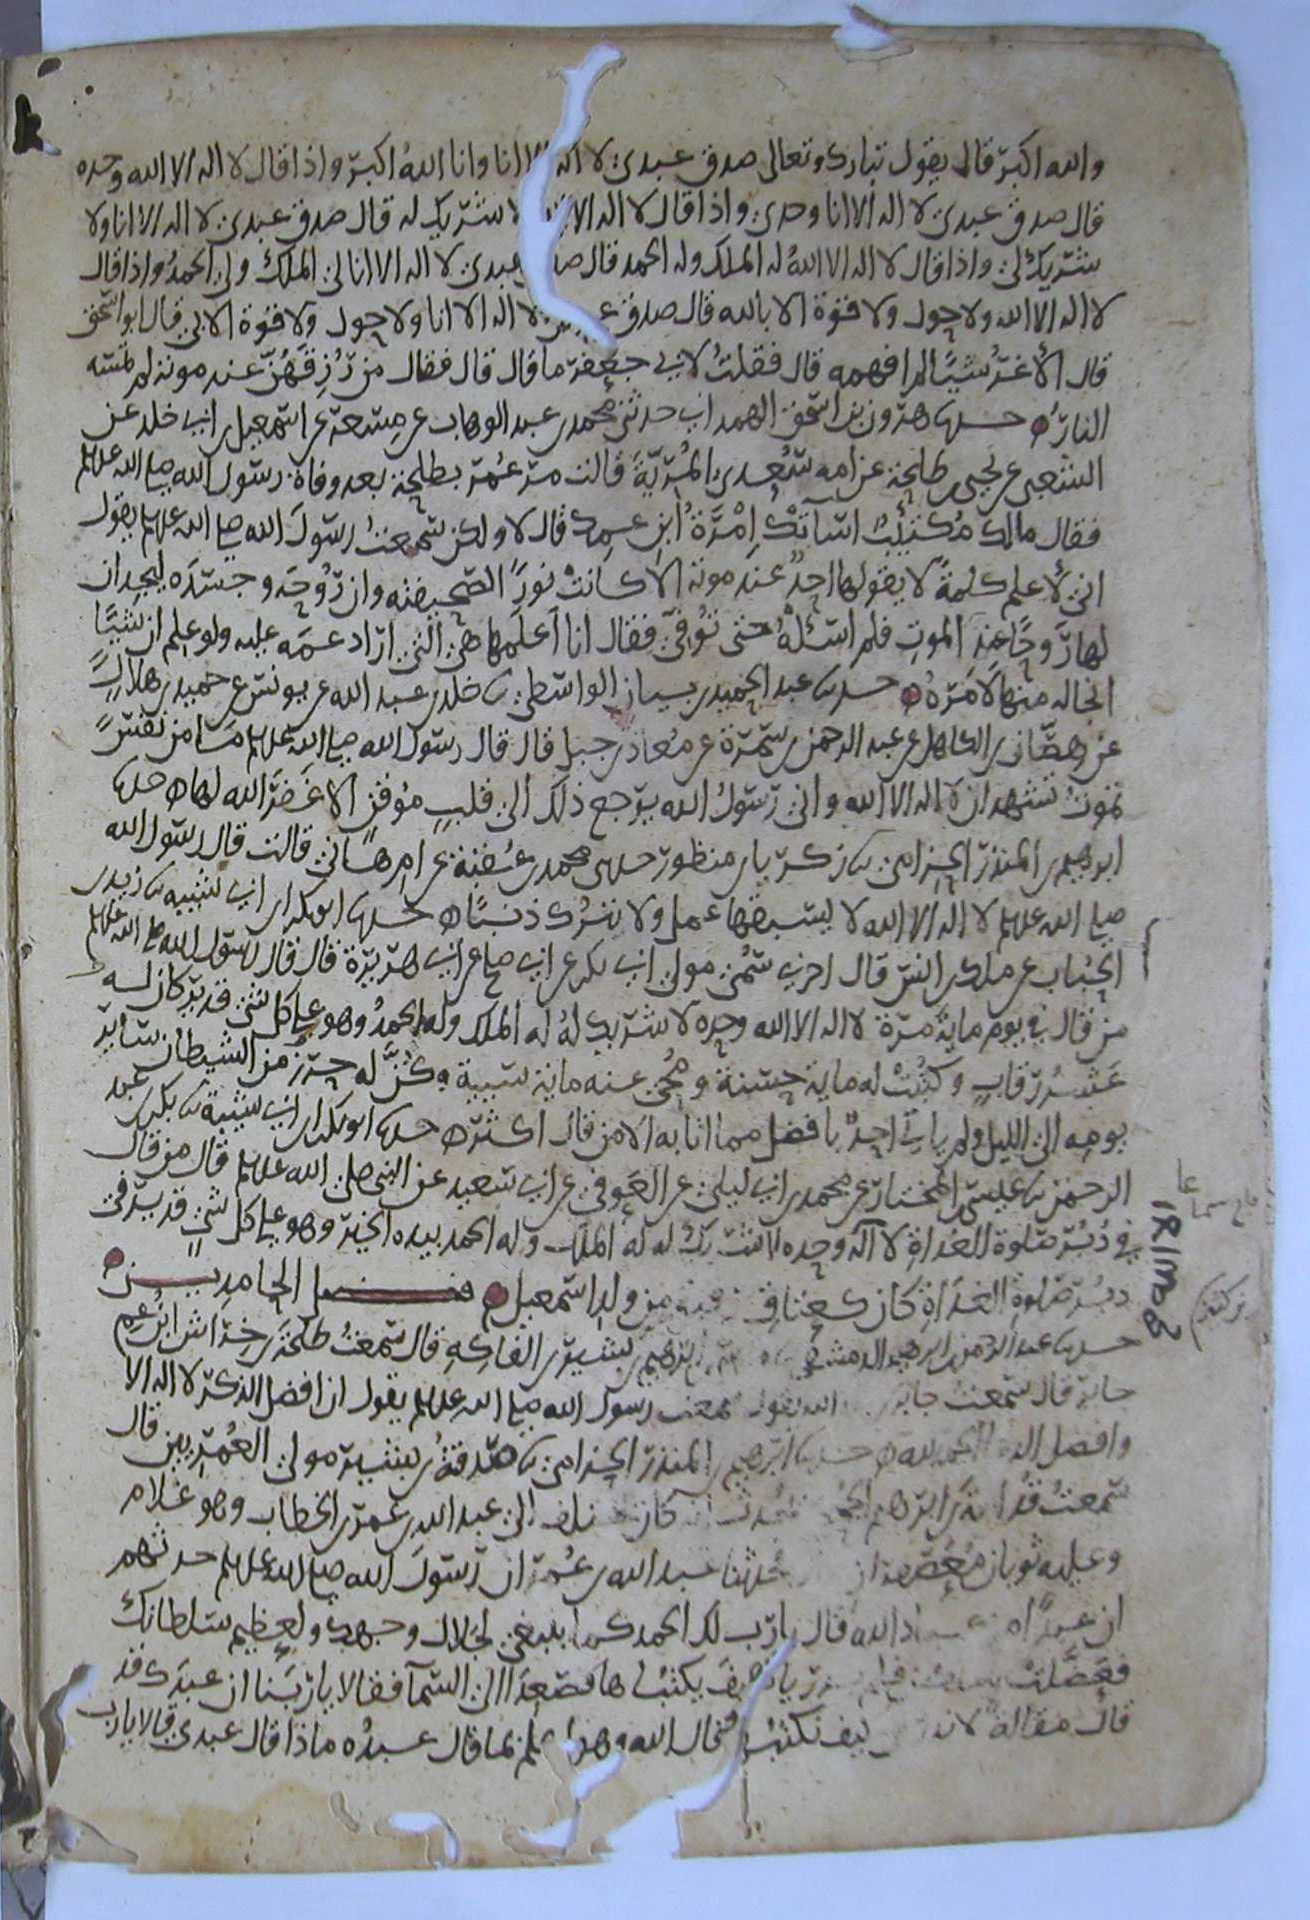 والله اكبر قال يقول تبارك وتعالى صدق عبدي لا اله الا انا وانا الله اكبر واذا قال لا اله الا الله وحده
قال صدق عبدي لا اله الا انا وحدي واذا قال لا اله الا لا شريك له قال صدق عبدي لا اله الا انا ولا
شريك لي واذا قال لا اله الا الله له الملك وله الحمد قال صد عبدي لا اله الا انا لي الملك ولي الحمد واذا قال
لا اله الا الله ولا حول ولا قوة الا بالله قال صدق لا اله الا انا ولا حول ولا قوة الا بي قال ابو اسحق
قال الاغر شيا لم افهمه قال فقلت لابي جعفر ما قال قال فقال من رزقهن عند موته لم تمسه
النار حدثنا هرون بن اسحق الهمداني حدثني محمد بن عبد الوهاب عن مسعر عن اسمعيل بن ابي خلد عن
الشعبي عن يحيى بن طلحة عن امه سعدى المرية قالت مر عمر بطلحة بعد وفاة رسول الله صلى الله عليه وسلم
فقال مالك مكتئب اسآتك امرة ابن عمك قال لا ولكن سمعت رسول الله صلى الله عليه وسلم يقول
اني لاعلم كلمة لا يقولها احد عند موته الا كانت نورا لصحيفته وان روحه وجسده ليجدان
لها روحا عند الموت فلم اسئله حتى توفي فقال انا اعلمها هي التي اراد عمه عليه ولو علم ان شيا
انجا له منها لامره حدثنا عبد الحميد بن بيان الواسطي ثنا خلد بن عبد الله عن يونس عن حميد بن هلال
عن هصان بن الكاهل عن عبد الرحمن بن سمرة عن معاذ بن جبل قال قال رسول الله صلى الله عليه وسلم ما من نفس
تموت تشهد ان لا اله الا الله واني رسول الله يرجع ذلك الى قلب موقن الا غفر الله لها حدثنا
ابرهيم بن المنذر الحزامي ثنا زكريا بن منظور حدثني محمد بن عقبة عن ام هانئ قالت قال رسول الله
صلى الله عليه وسلم لا اله الا الله لا يسبقها عمل ولا تترك ذنبا حدثنا ابو بكر بن ابي شيبه ثنا زيد بن
الحباب عن ملك بن انس قال اخبرني سمي مولى ابي بكر عن ابي صالح عن ابي هريرة قال قال رسول الله صلى الله عليه وسلم
من قال في يوم ماية مرة لا اله الا الله وحده لا شريك له له الملك وله الحمد وهو على كل شي قدير كان له
عشر رقاب وكتبت له ماية حسنة ومحي عنه ماية سيية وكن له حرز من الشيطان ساير
يومه الى الليل ولم يات احد بافضل مما اتا به الا من قال اكثر حدثنا ابو بكر بن ابي شيبة ثنا بكر بن عبد
الرحمن ثنا عيسى المختار عن محمد بن ابي ليلى عن العوفي عن ابي سعيد عن النبي صلى الله عليه وسلم قال من قال
في دبر صلوة الغداة لا اله وحده لا شريك له له الملك وله الحمد بيده الخير وهو على كل شي قدير في
دبر صلوة الغداة كان كعتاق من ولد اسمعيل فضل الحامدين
حدثنا عبد الرحمن بن ابرهيم الدمشقي ابرهيم بن بشير بن الفاكه قال سمعت طلحة بن خراش ابن عم
جابر قال سمعت جابر الله يقول سمعت رسول الله صلى الله عليه وسلم يقول ان افضل الذكر لا اله الا
وافضل الحمد لله حدثنا ابرهيم بن المنذر الحزامي ثنا صدقة بن بشير مولى العمريين قال
سمعت قدامة بن ابرهيم يحدث كان الى عبد الله بن عمر بن الخطاب وهو غلام
وعليه ثوبان معصفران حدثنا عبد الله بن عمر ان رسول الله صلى الله عليه وسلم حدثهم
ان عبدا الله قال يا رب لك الحمد كما ينبغي لجلال وجهك ولعظيم سلطانك
فعضلت يكتبانها فصعدا الى السما فقالا يا ربنا ان عبدك قد
قال مقالة لا كيف نكتبها قال الله وهو اعلم بما قال عبده ماذا قال عبدي قالا يا رب